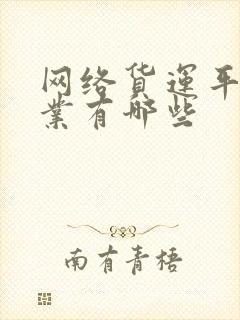 网络货运平
业有哪些
南有青梧